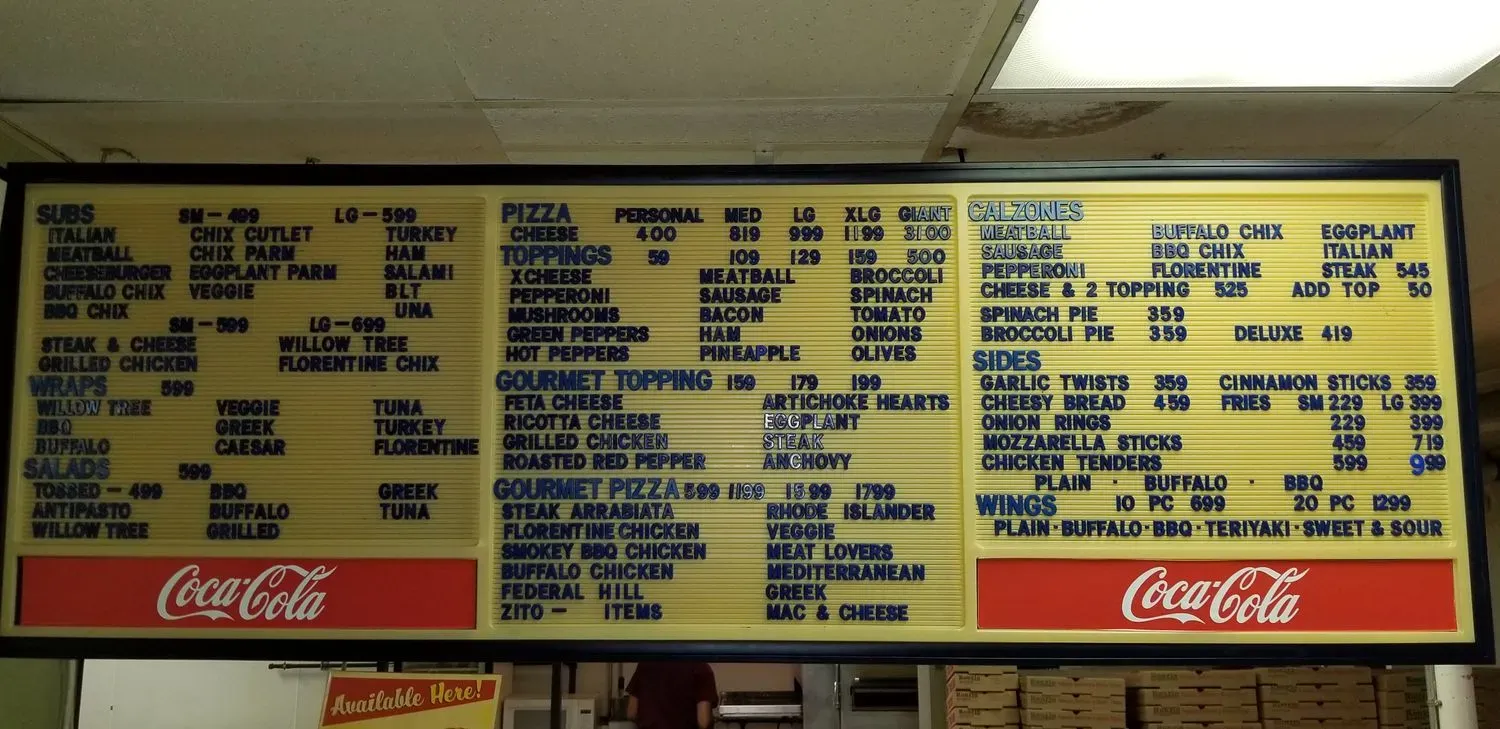 SUBS SM - 499 LG - 599
ITALIAN CHIX CUTLET TURKEY
MEATBALL CHIX PARM HAM
CHEESEBURGER EGGPLANT PARM SALAMI
BUFFALO CHIX VEGGIE BLT
BBQ CHIX UNA
SM - 599 LG - 699
STEAK & CHEESE WILLOW TREE
GRILLED CHICKEN FLORENTINE CHIX
WRAPS 599
WILLOW TREE VEGGIE TUNA
BBQ GREEK TURKEY
BUFFALO CAESAR FLORENTINE
SALADS 599
TOSSED - 499 BBQ GREEK
ANTIPASTO BUFFALO TUNA
WILLOW TREE GRILLED
Coca-Cola
PIZZA PERSONAL MED LG XLG GIANT
CHEESE 400 819 999 1199 3100
TOPPINGS 59 109 129 159 500
XCHEESE MEATBALL BROCCOLI
PEPPERONI SAUSAGE SPINACH
MUSHROOMS BACON TOMATO
GREEN PEPPERS HAM ONIONS
HOT PEPPERS PINEAPPLE OLIVES
GOURMET TOPPING 159 179 199
FETA CHEESE ARTICHOKE HEARTS
RICOTTA CHEESE EGGPLANT
GRILLED CHICKEN STEAK
ROASTED RED PEPPER ANCHOVY
GOURMET PIZZA 599 1199 1599 1799
STEAK ARRABIATA RHODE ISLANDER
FLORENTINE CHICKEN VEGGIE
SMOKEY BBQ CHICKEN MEAT LOVERS
BUFFALO CHICKEN MEDITERRANEAN
FEDERAL HILL GREEK
ZITO - ITEMS MAC & CHEESE
CALZONES
MEATBALL BUFFALO CHIX EGGPLANT
SAUSAGE BBQ CHIX ITALIAN
PEPPERONI FLORENTINE STEAK 545
CHEESE & 2 TOPPING 525 ADD TOP 50
SPINACH PIE 359
BROCCOLI PIE 359 DELUXE 419
SIDES
GARLIC TWISTS 359 CINNAMON STICKS 359
CHEESY BREAD 459 FRIES SM 229 LG 399
ONION RINGS 229 399
MOZZARELLA STICKS 459 719
CHICKEN TENDERS 599 999
PLAIN · BUFFALO · BBQ
WINGS 10 PC 699 20 PC 1299
PLAIN·BUFFALO·BBQ·TERIYAKI·SWEET & SOUR
Coca-Cola
Available Here!